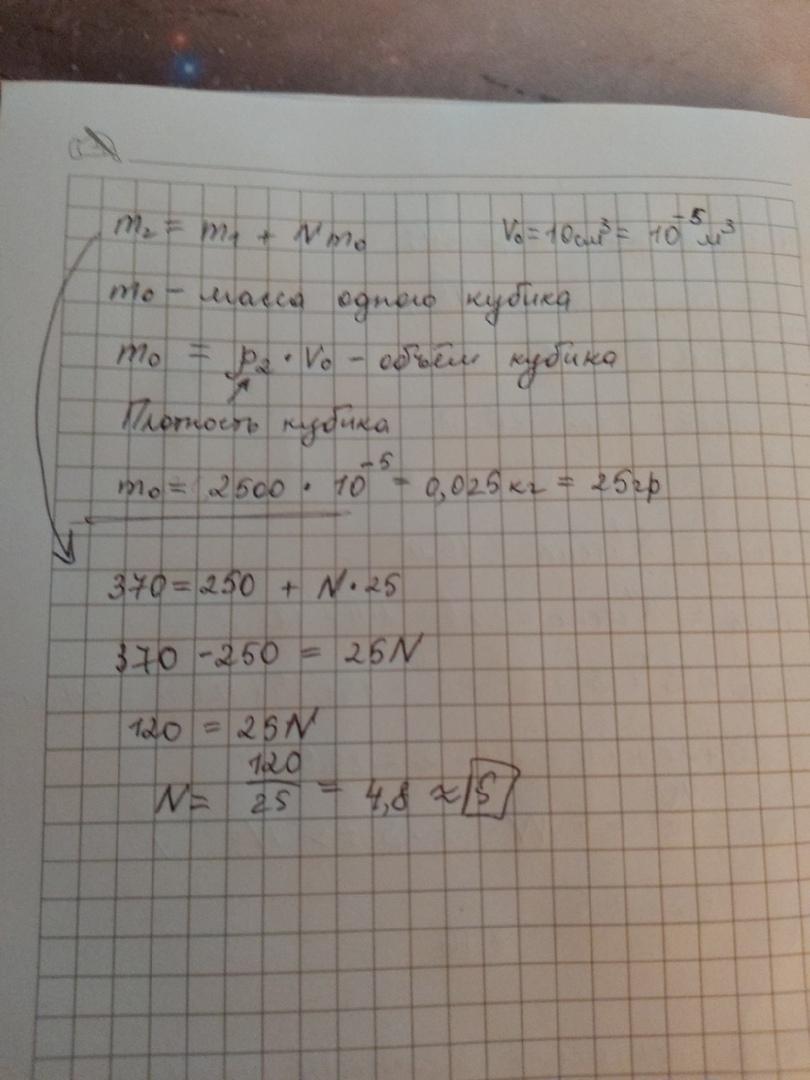 m₂ = m₁ + Nm₀ V₀ = 10см³ = 10⁻⁵м³
m₀ - масса одного кубика
m₀ = ρ₂ · V₀ - объём кубика
Плотность кубика
m₀ = 2500 · 10⁻⁵ = 0,025кг = 25гр
370 = 250 + N·25
370 - 250 = 25N
120 = 25N
N = 120/25 = 4,8 ≈ 5